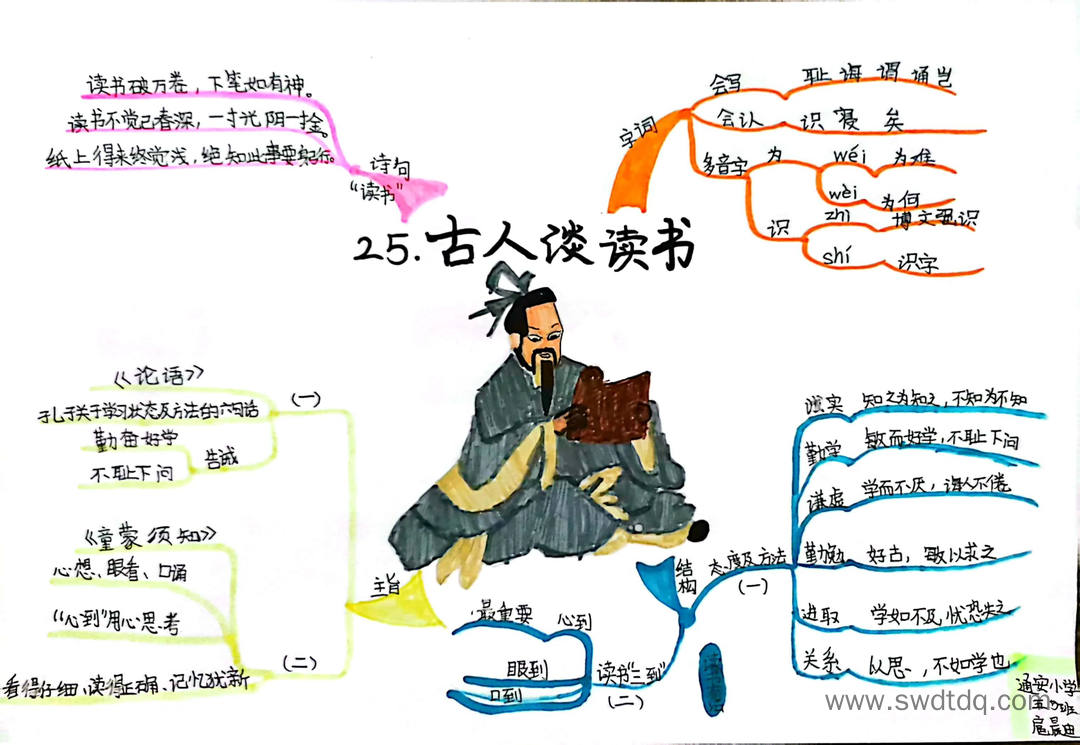 25.古人谈读书
诗句
“读书”
读书破万卷，下笔如有神。
读书不觉已春深，一寸光阴一寸金。
纸上得来终觉浅，绝知此事要躬行。
字词
会写
耻 诲 谓 诵 岂
会认
识 寝 矣
多音字
为
wéi
为难
wèi
为何
识
zhì
博文强识
shí
识字
主旨
(一)
《论语》
孔子关于学习状态及方法的六句话
告诫
勤奋好学
不耻下问
(二)
《童蒙须知》
心想、眼看、口诵
“心到”用心思考
看得仔细、读得正确、记忆犹新
结构
态度及方法
(一)
诚实
知之为知之，不知为不知
勤学
敏而好学，不耻下问
谦虚
学而不厌，诲人不倦
勤勉
好古，敏以求之
进取
学如不及，忧恐失之
关系
以思，不如学也
读书“三到”
(二)
最重要
心到
眼到
口到
www.swdtdq.com
通安小学
班